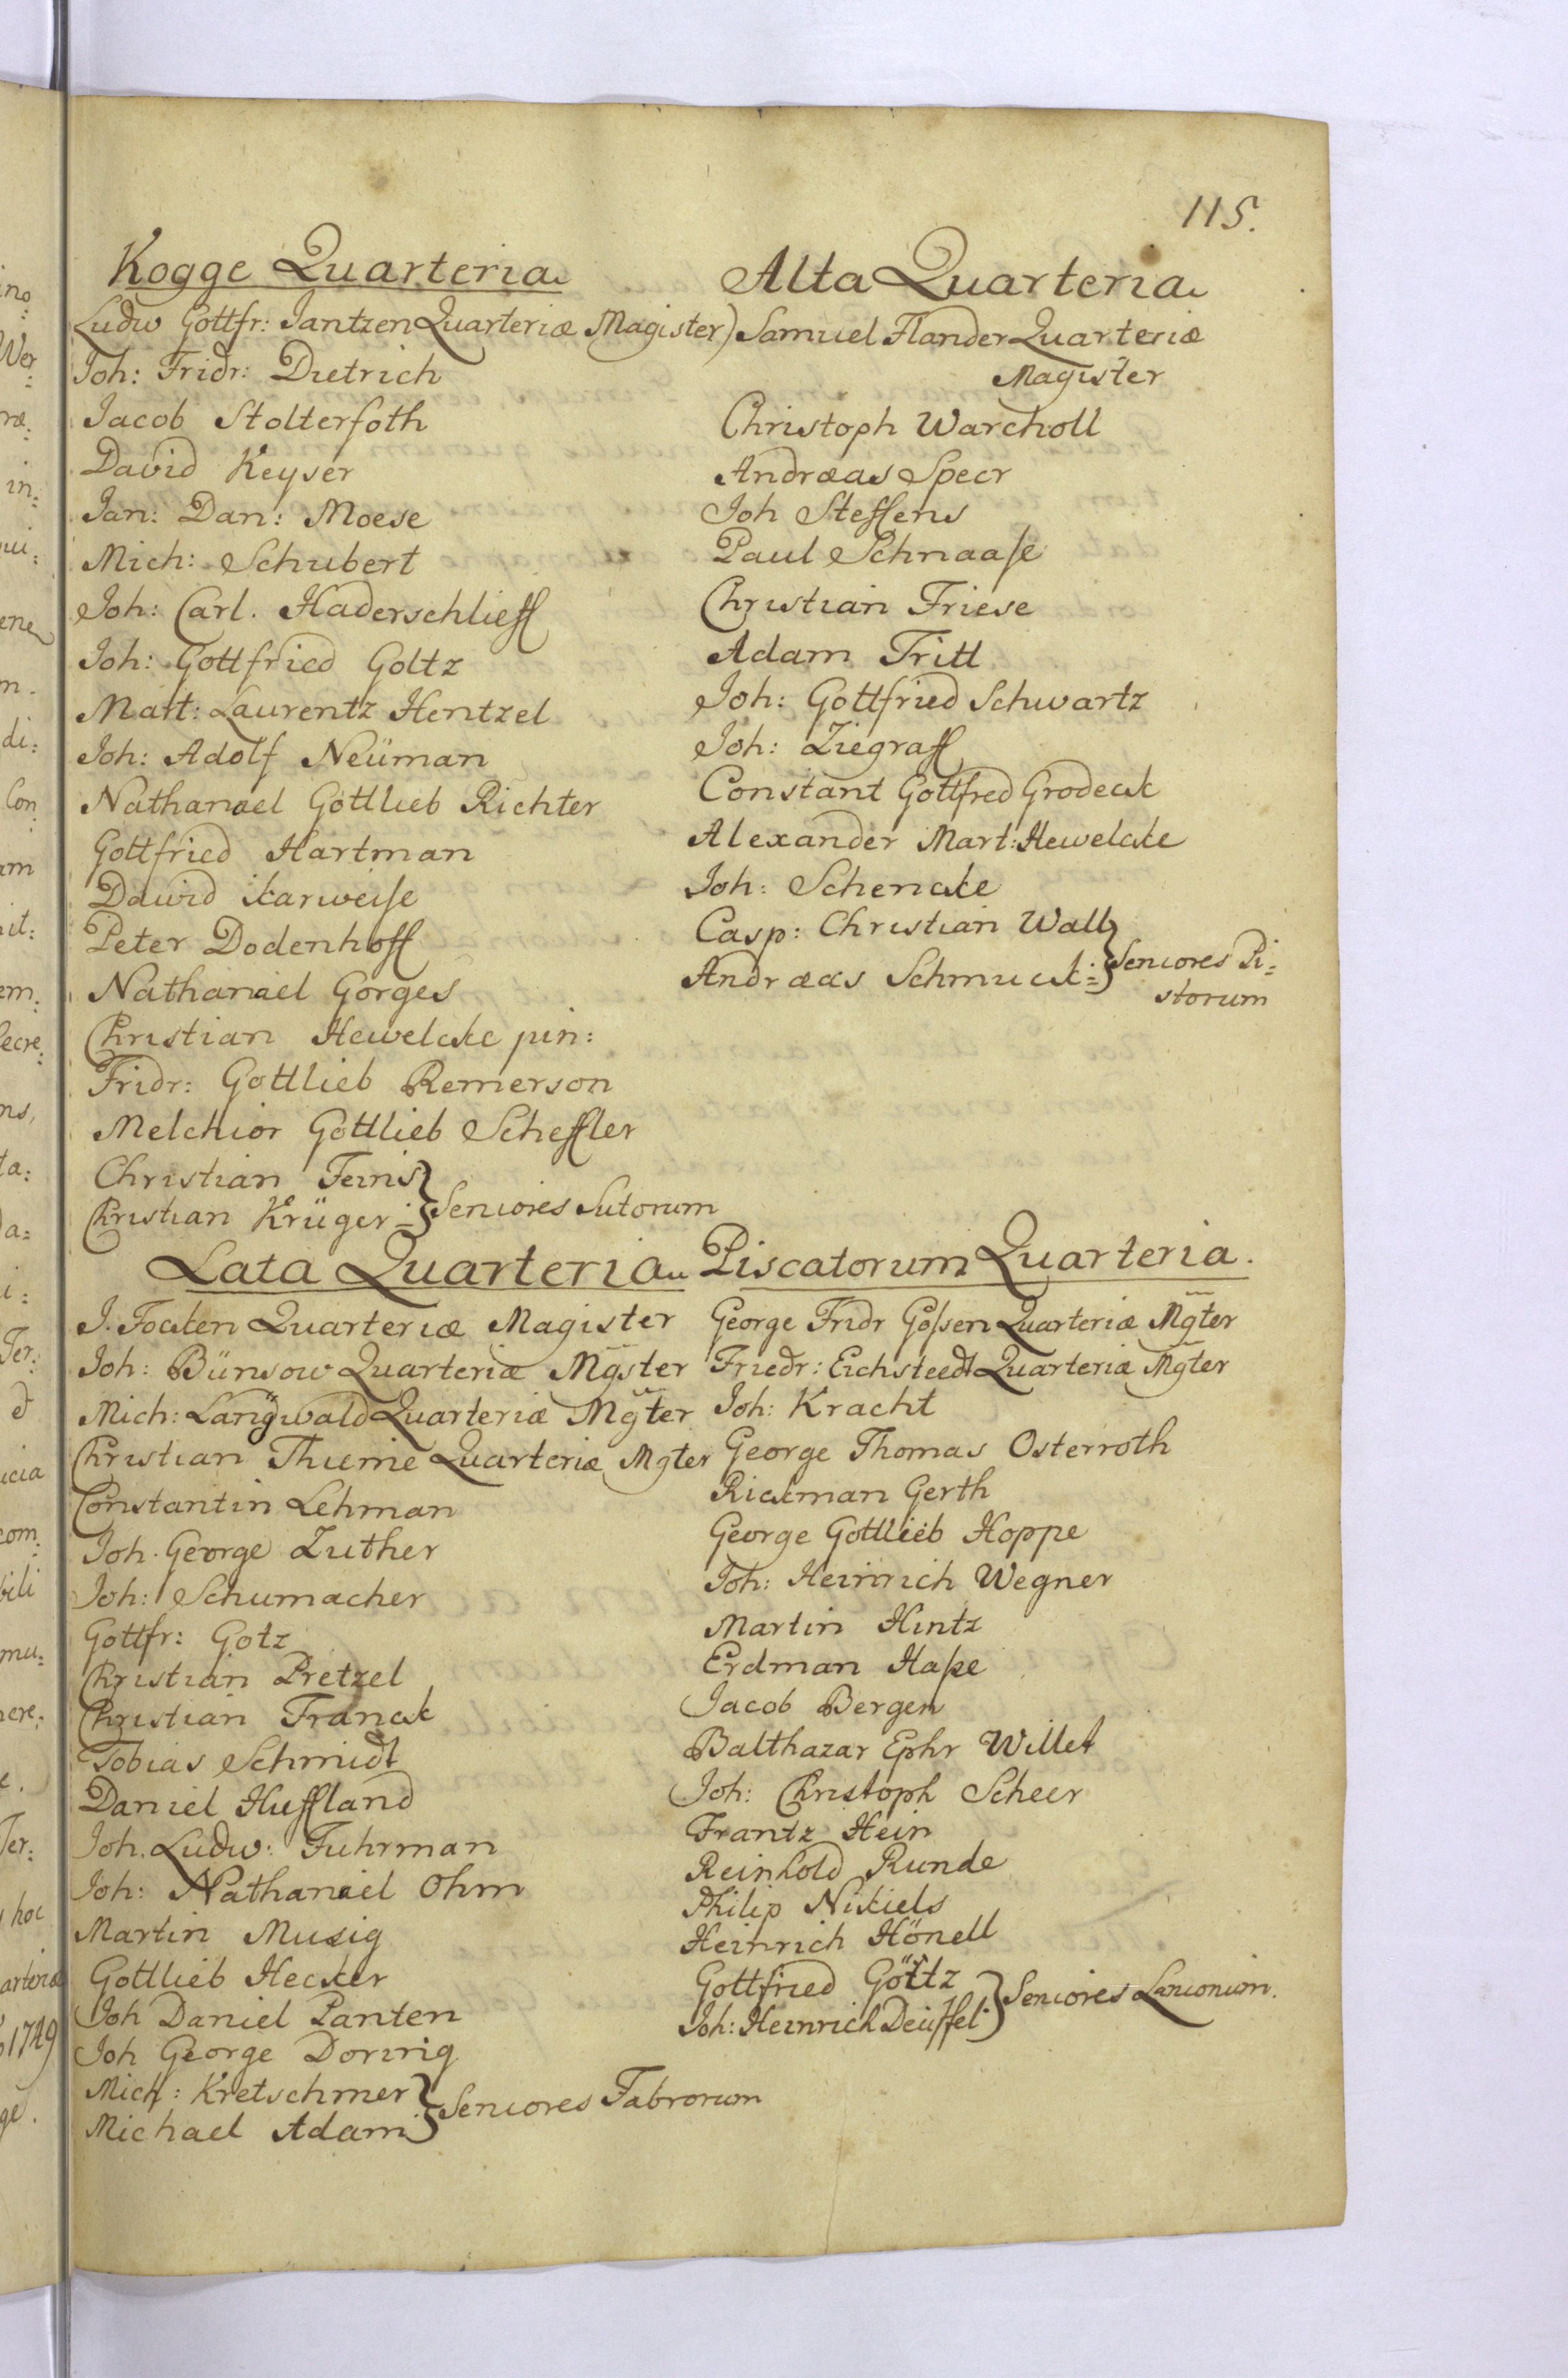 115.
Kogge Quarteria
Ludw Gottfr: Jantzen Quarteriæ Magister)
Joh: Fridr: Dietrich
Jacob Stolterfoth
David Keyser
Jan: Dan: Moese
Mich: Schubert
Joh: Carl. Haderschlieff
Joh: Gottfried Goltz
Mart: Laurentz Hentzel
Joh: Adolf Neüman
Nathanael Gottlieb Richter
Gottfried Hartman
David Karweise
Peter Dodenhoff
Nathanael Gorges
Christian Hewelcke jun:
Fridr: Gottlieb Remerson
Melchior Gottlieb Scheffler
Christian Feins
Christian Krüger } Seniores Sutorum
Alta Quarteria
Samuel Hander Quarteriæ
Magister
Christoph Warcholl
Andræas Specr
Joh Steffens
Paul Schnaase
Christian Friese
Adam Tritt
Joh: Gottfried Schwartz
Joh: Ziegraff
Constant Gottfred Grodeck
Alexander Mart: Hewelcke
Joh: Schencke
Casp: Christian Wall
Andræas Schmuck } Seniores Pi=
storum
Lata Quarteria
J. Focken Quarteriæ Magister
Joh: Bünsow Quarteriæ Mgster
Mich: Langwald Quarteriæ Mgter
Christian Thieme Quarteriæ Mgter
Constantin Lehman
Joh. George Luther
Joh: Schumacher
Gottfr: Gotz
Christian Pretzel
Christian Franck
Tobias Schmidt
Daniel Huffland
Joh. Ludw: Fuhrman
Joh: Nathanael Ohm
Martin Musig
Gottlieb Hecker
Joh Daniel Panten
Joh George Dorwig
Mich: Kretschmer
Michael Adam } Seniores Fabrorum
Piscatorum Quarteria.
George Fridr Gossen Quarteriæ Mgter
Friedr: Eichsteedt Quarteriæ Mgter
Joh: Kracht
George Thomas Osterroth
Rickman Gerth
George Gottlieb Hoppe
Joh: Heinrich Wegner
Martin Hintz
Erdman Hase
Jacob Bergen
Balthazar Ephr Willet
Joh: Christoph Scheer
Frantz Hein
Reinhold Runde
Philip Nickels
Heinrich Hönell
Gottfried Görtz
Joh: Heinrich Deüffel } Seniores Lanionum.